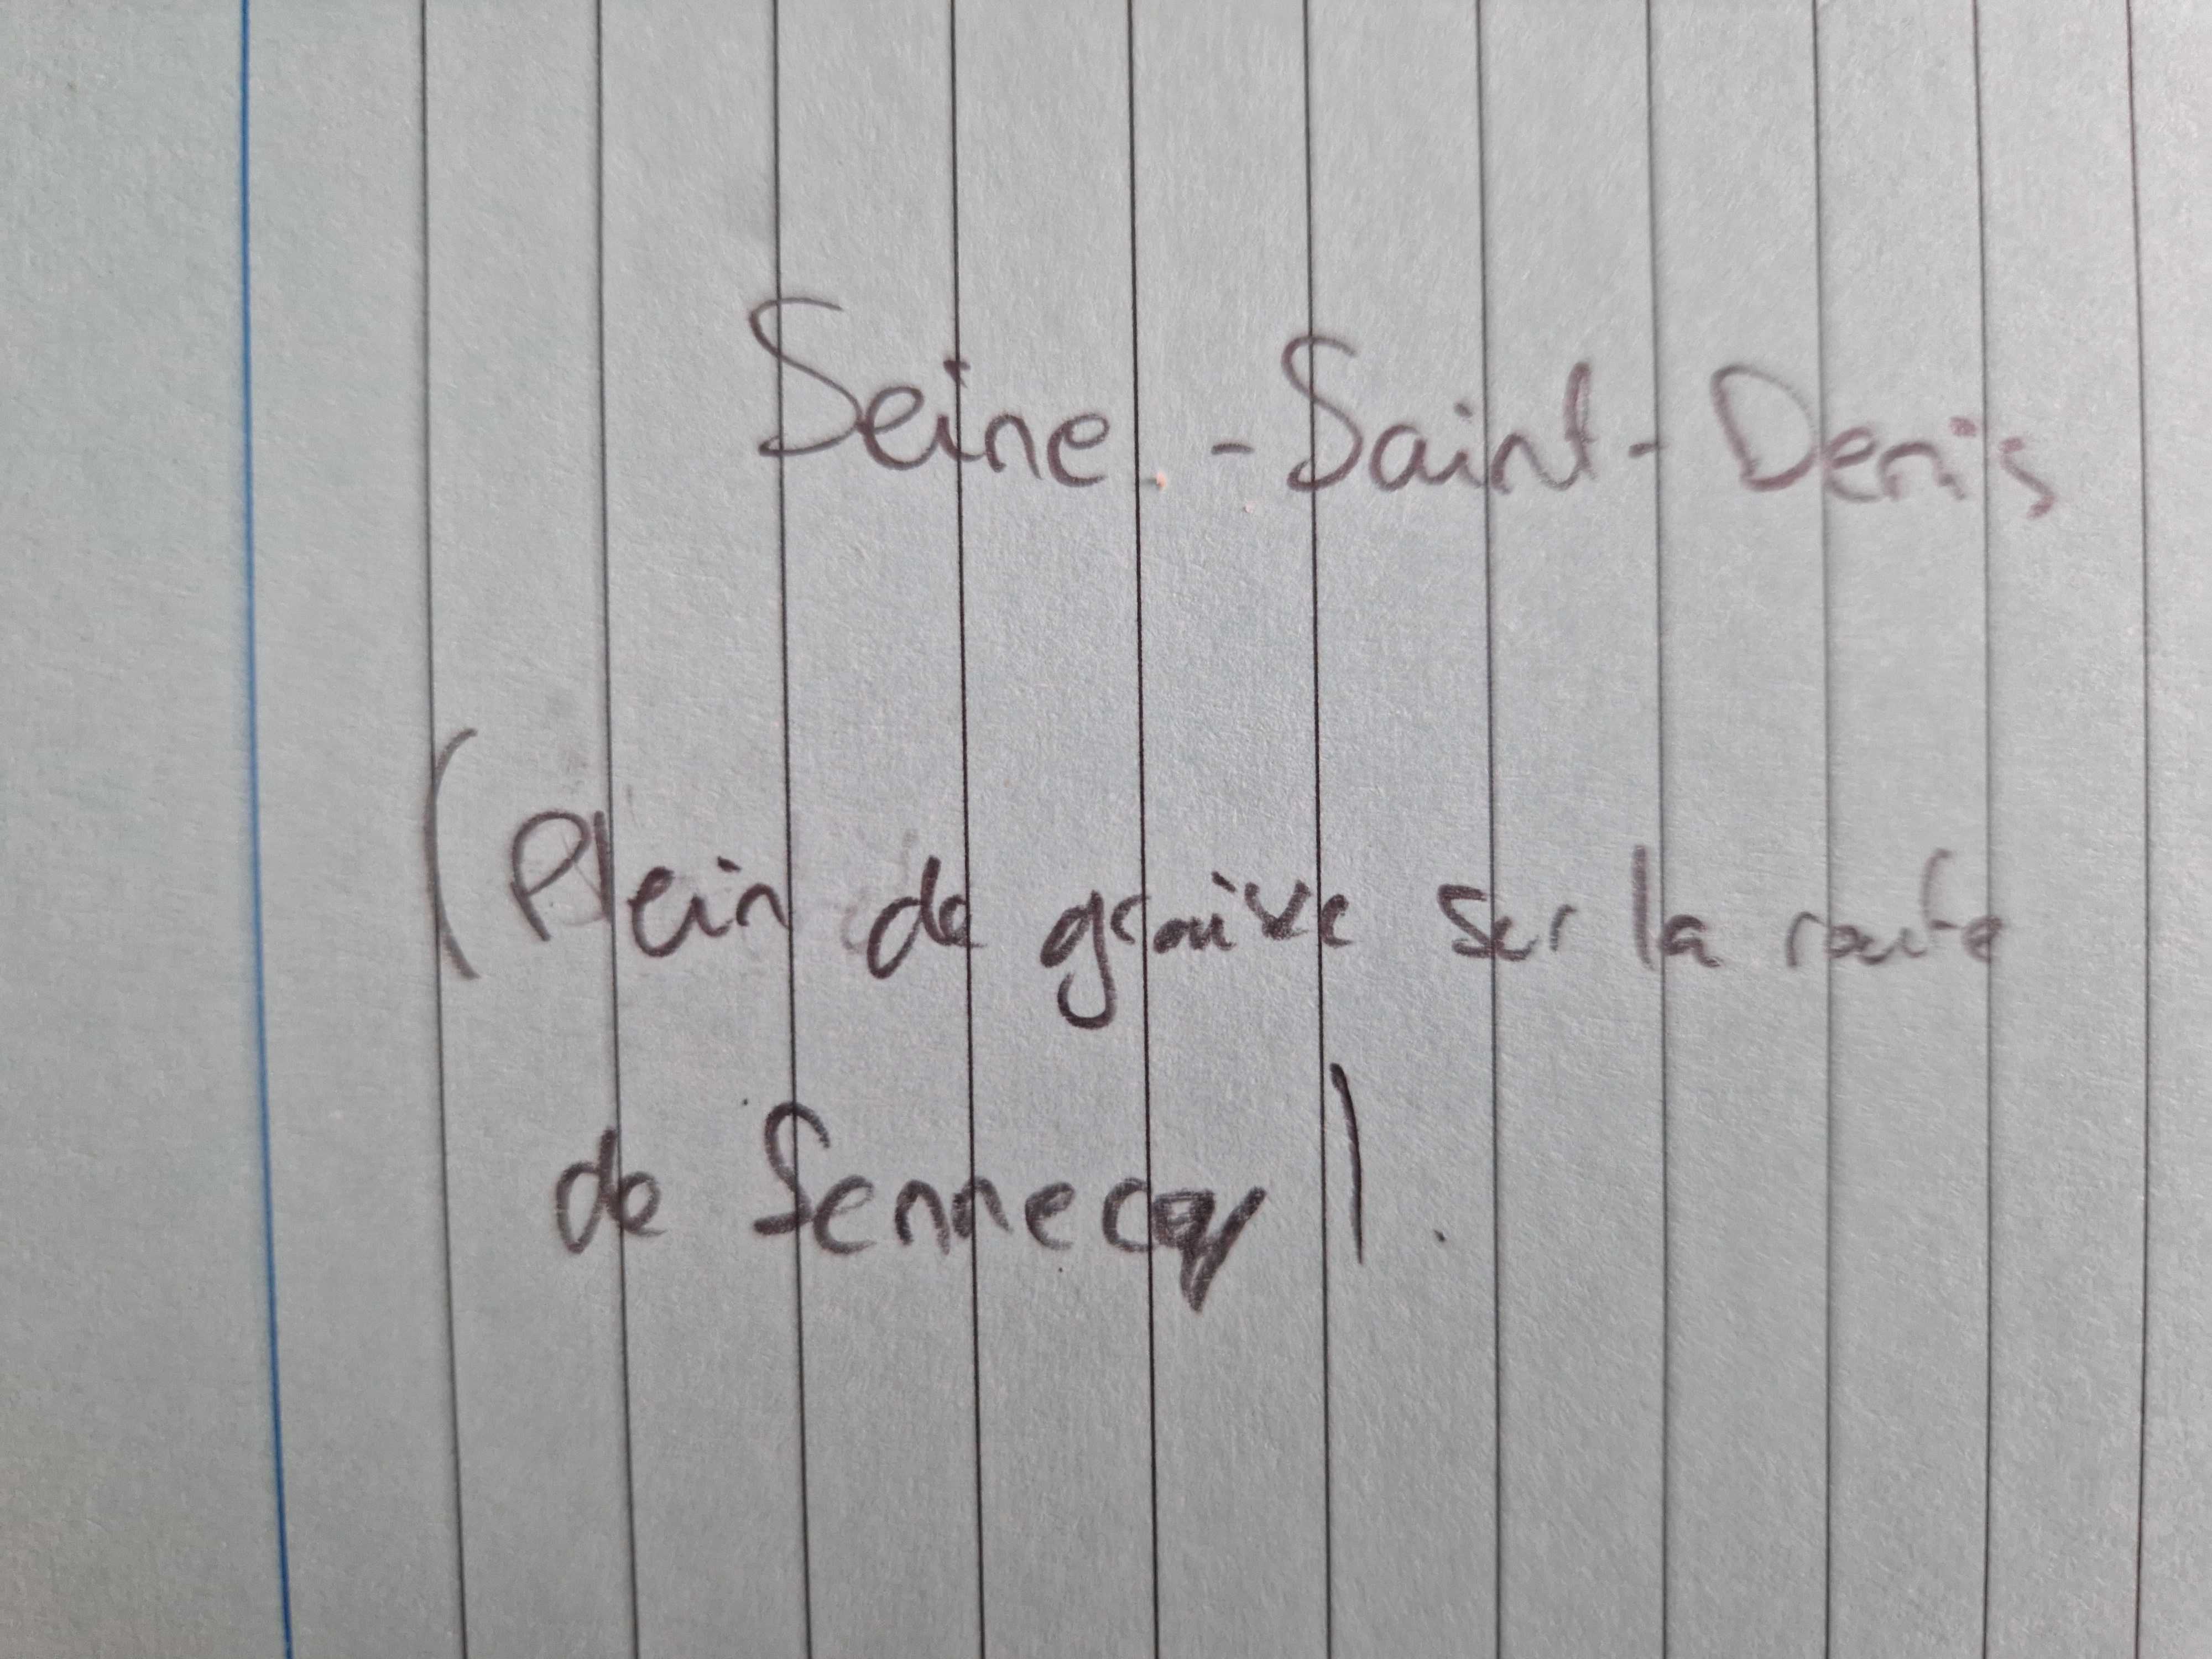 Seine - Saint - Denis
(Plein de graive sur la route
de Sennecey).